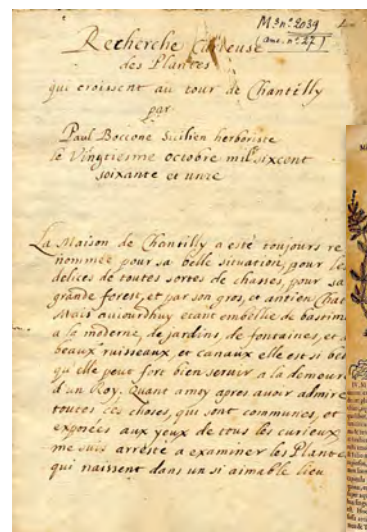 Ms n° 2039
(anc. n° 27)
Recherche Curieuse
des Plantes
qui croissent au tour de Chantilly
par
Paul Boccone Sicilien herboriste
le Vingtiesme octobre mil sixcent
soixante et unze
La Maison de Chantilly a esté toujours re
nommée pour sa belle situation, pour les
delices de toutes sortes de chasses, pour sa
grande forest, et par son gros, et antien Chat
Mais aujourdhuy etant embellie de bastime
a la moderne, de jardins, de fontaines, et d
beaux ruisseaux et canaux elle est si bel
qu'elle peut fort bien servir a la demeure
d'un Roy. Quant amoy apres avoir admiré
toutes ces choses, qui sont communes, et
exposées aux yeux de tous les curieux
me suis arresté a examiner les Plante
qui naissent dans un si aimable lieu